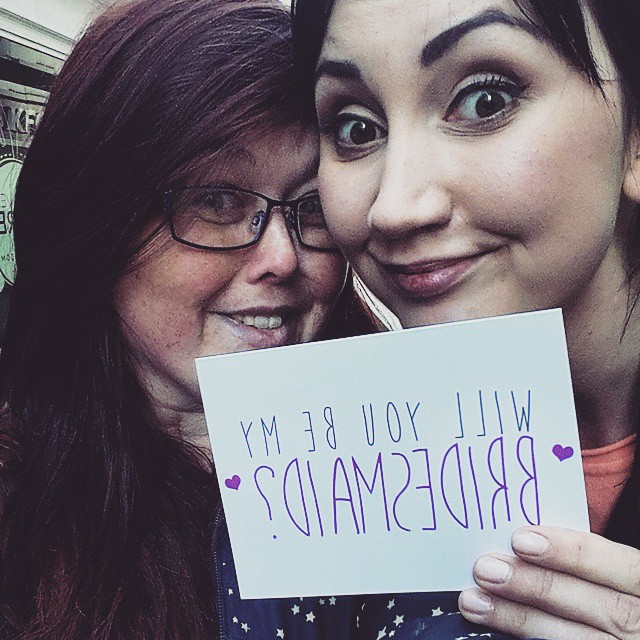 WILL YOU BE MY
BRIDESMAID?